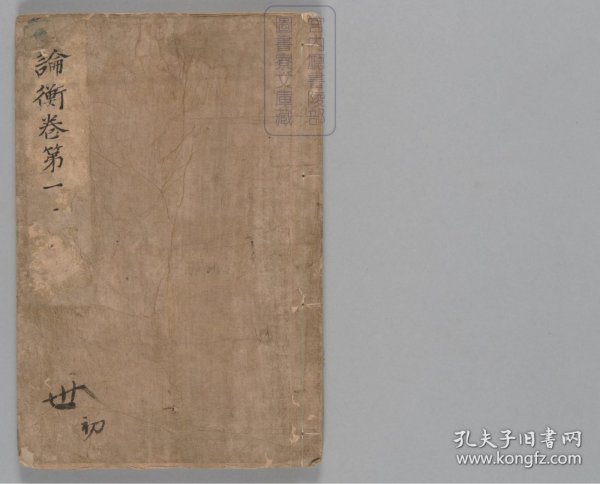 論衡卷第一
宮內廳書陵部
圖書寮文庫藏
初
孔夫子旧书网
www.kongfz.com